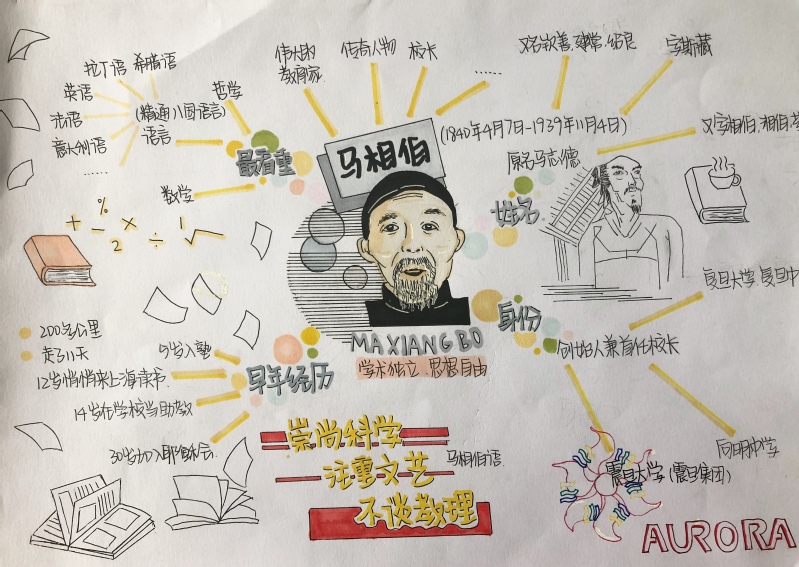 拉丁语 希腊语
英语
法语
意大利语
……
(精通八国语言)
语言
哲学
数学
最看重
伟大的
教育家
传奇人物
校长
……
又名钦善、建常、绍良
字斯藏
又字相伯,相伯,
马相伯
(1840年4月7日-1939年11月4日)
原名马志德
姓名
+ % - × 2 ÷ 1 √
200多公里
走了11天
5岁入塾
12岁悄悄来上海读书
14岁在学校当助教
30岁加入耶稣会
早年经历
MA XIANG BO
学术独立 思想自由
身份
创始人兼首任校长
复旦大学、复旦中
向明中学
震旦大学(震旦集团)
崇尚科学
注重文艺
不谈教理
马相伯语
AURORA